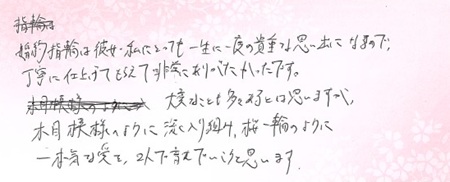 指輪は
婚約指輪は彼女・私にとっても一生に一度の貴重な思い出になるので、
丁寧に仕上げてもらえて非常にありがたかったです。
木目模様のように 大変なことも多々あるとは思いますが、
木目模様のように深く入り組み、桜一輪のように
一本気な愛を、2人で育んでいこうと思います。